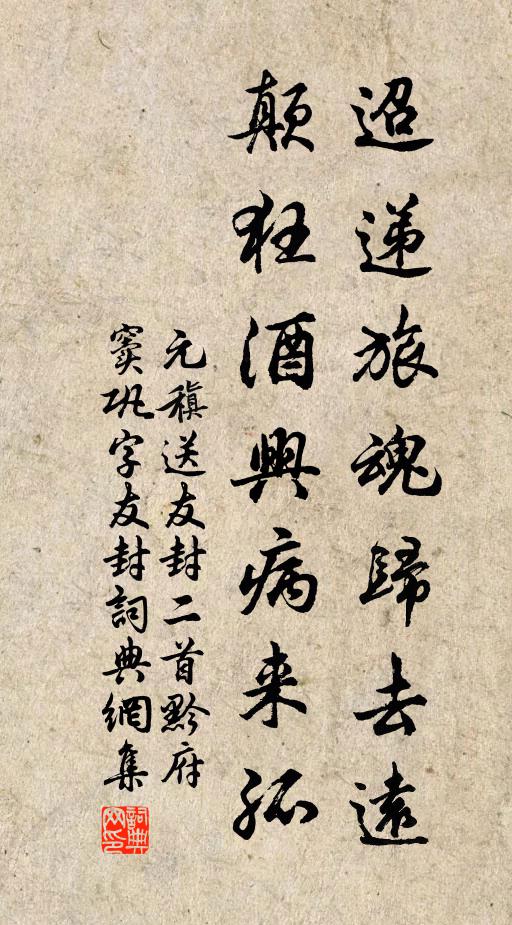 迢递旅魂歸去遠
颠狂酒興病来孤
元稹送友封二首黔府
窦巩字友封詞典網集
詞典网印